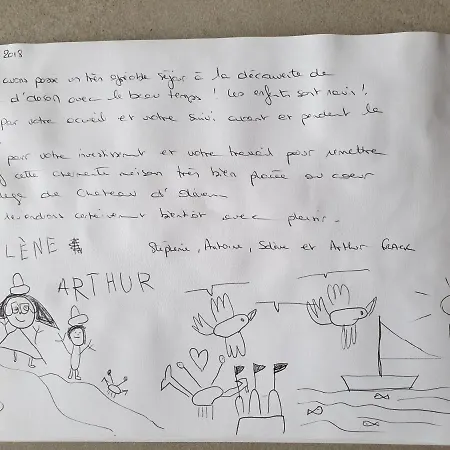 2018
avons passé un très agréable séjour à la découverte de
d'oleron avec le beau temps ! Les enfants sont ravis !
par votre accueil et votre suivi avant et pendant le
pour votre investissement et votre travail pour remettre
cette charmante maison très bien placée au coeur
de Chateau d'Oléron
certainement bientôt avec plaisir.
LÈNE
Stéphanie, Antoine, Solène et Arthur
ARTHUR